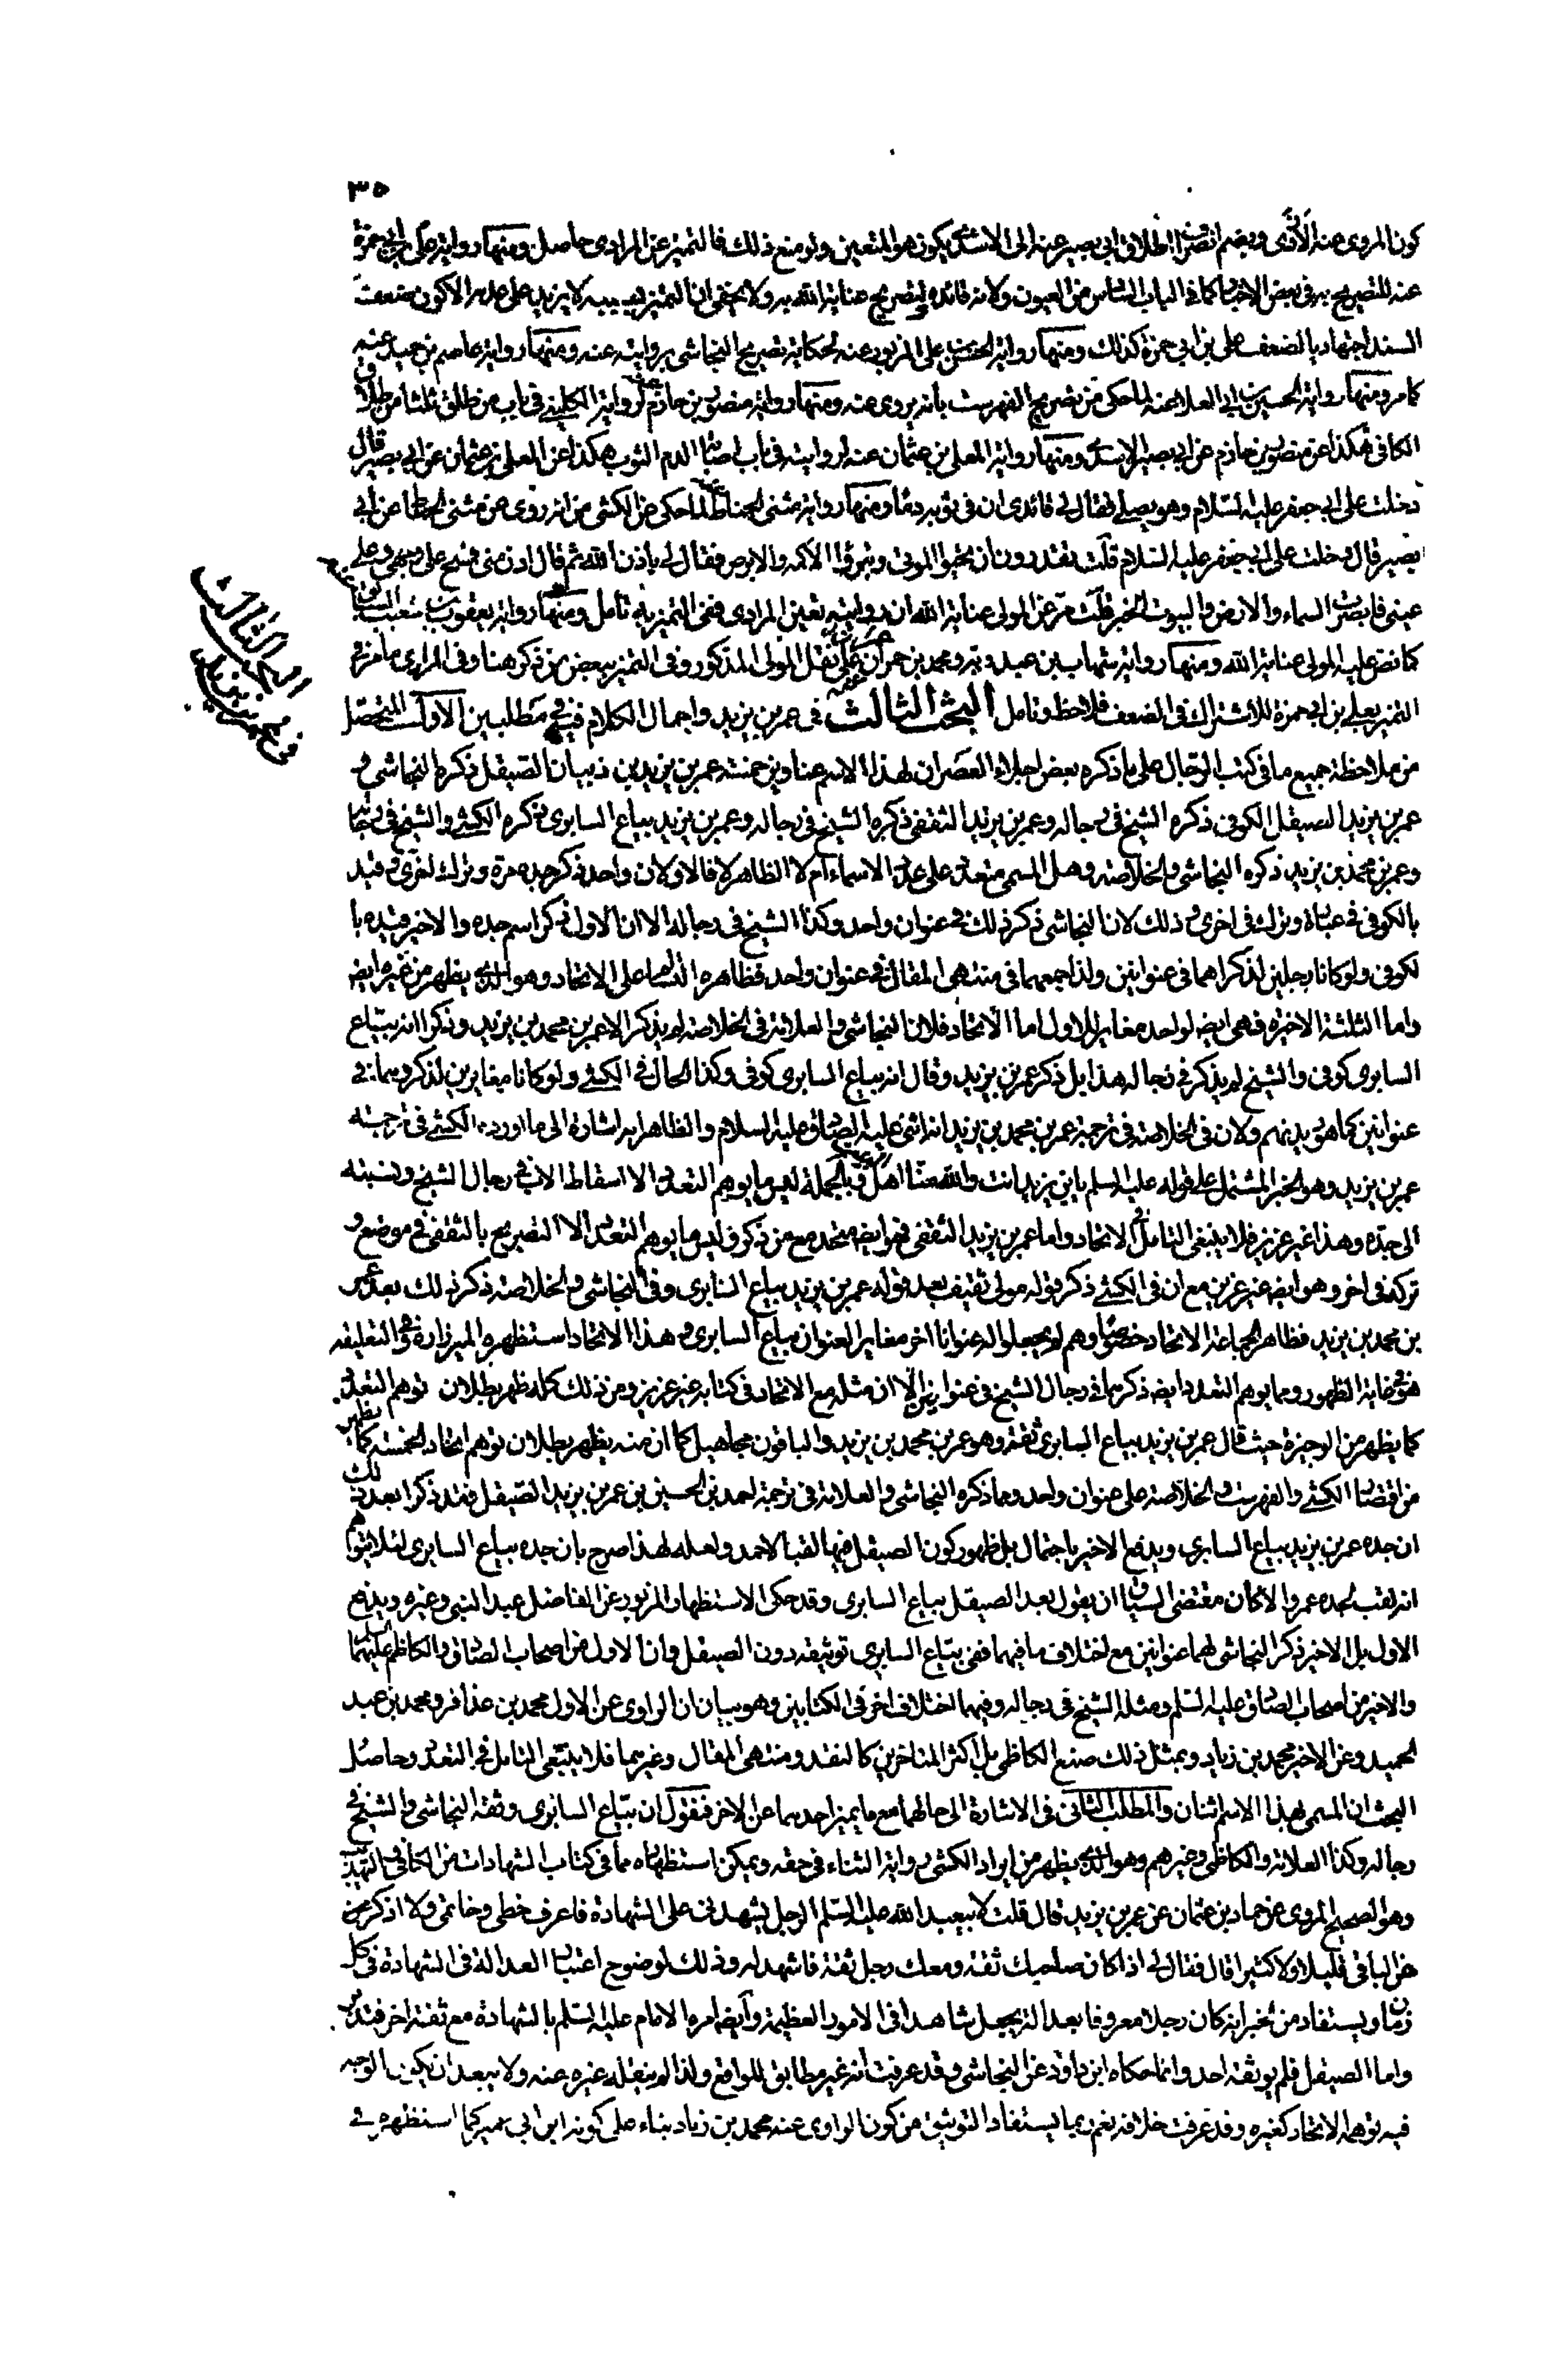 ٣٥
كون المروى عنه الأذى وبضم انصراف اطلاق ابى بصير عنه الى الاسدى يكون هو المتعين ولو منع ذلك فالتميز عن المرادى حاصل ومنها رواية على بن ابى حمزة
عنه للتصريح به فى بعض الاخبار كما فى الباب السادس من العيون ولانه قائده لتصريح عناية الله به ولا يخفى ان التميز بسببه لا يزيد على عدمه الا كون ضعف
السند اجتهاديا لضعف على بن ابى حمزة كذلك ومنها رواية الحسن بن على المزبور عنه لحكاية تصريح النجاشى بروايته عنه ومنها رواية عاصم بن حميد عنه
كما مر ومنها رواية الحسين بن ابى العلا عنه لما حكى من تصريح الفهرست بانه يروى عنه ومنها رواية منصور بن حازم عنه لرواية الكلينى فى باب من طلق ثلثا من طلاق
الكافى هكذا عن منصور بن حازم عن ابى بصير الاسدى ومنها رواية المعلى بن عثمان عنه لروايته فى باب اصابة الدم الثوب هكذا عن المعلى بن عثمان عن ابى بصير قال
دخلت على ابى جعفر عليه السلام وهو يصلى فقال لى قائدى ان فى ثوبه دما ومنها رواية مثنى الحناط عنه لما حكى عن الكشى من انه روى عن مثنى الحناط عن ابى
بصير قال دخلت على ابى جعفر عليه السلام قلت تقدرون ان تحيوا الموتى وتبرؤا الاكمه والابرص فقال لى باذن الله ثم قال ادن منى فمسح على وجهى وعلى
عينى فابصرت السماء والارض والبيوت الخبر قلت مر عن المولى عناية الله ان روايته تعين المرادى ففى التميز به تامل ومنها رواية يعقوب بن شعيب
كما نص عليه المولى عناية الله ومنها رواية شهاب بن عبد ربه ومحمد بن حمران على نقل المولى المذكور وفى التميز ببعض من ذكر هنا وفى المرادى ما مر فى
التميز بعلى بن ابى حمزة للاشتراك فى الضعف فلاحظ وتامل البحث الثالث فى عمر بن يزيد واجمال الكلام فيه فى مطلبين الاول المتحصل
من ملاحظة جميع ما فى كتب الرجال على ما ذكره بعض اجلاء العصر ان لهذا الاسم عناوين خمسة عمر بن يزيد بن ذبيان الصيقل ذكره النجاشى و
عمر بن يزيد الصيقل الكوفى ذكره الشيخ فى رجاله وعمر بن يزيد الثقفى ذكره الشيخ فى رجاله وعمر بن يزيد بياع السابرى ذكره الكشى والشيخ فى رجاله
وعمر بن محمد بن يزيد ذكره النجاشى والخلاصة وهل المسمى متعدد على عدد الاسماء ام لا الظاهر لا فالاولان واحد ذكر جده مرة وترك اخرى وقيد
بالكوفى فى عبارة وترك فى اخرى وذلك لان النجاشى ذكر ذلك فى عنوان واحد وكذا الشيخ فى رجاله الا ان الاول ذكر اسم جده والاخير قيده با
لكوفى ولو كانا رجلين لذكراهما فى عنوانين ولذا جمعهما فى منتهى المقال فى عنوان واحد فظاهره انه بنى على الاتحاد وهو الذى يظهر من غيره ايض
واما الثلثة الاخيرة فهى ايض لواحد مغاير للاول اما الاتحاد فلان النجاشى والعلامة فى الخلاصة لم يذكرا الا عمر بن محمد بن يزيد وذكرا انه بياع
السابرى كوفى والشيخ لم يذكر فى رجاله هذا بل ذكر عمر بن يزيد وقال انه بياع السابرى كوفى وكذا الحال فى الكشى ولو كانا مغايرين لذكروهما فى
عنوانين كما هو ديدنهم ولان فى الخلاصة فى ترجمة عمر بن محمد بن يزيد انه اثنى عليه الصادق عليه السلام والظاهر انه اشارة الى ما اورده الكشى فى ترجمة
عمر بن يزيد وهو الخبر المشتمل على قوله عليه السلم يا بن يزيد انت والله منا اهل البيت وبالجملة ليس ما يوهم التعدد الا اسقاط الاب فى رجال الشيخ ونسبته
الى جده وهذا غير عزيز فلا ينبغى التامل فى الاتحاد واما عمر بن يزيد الثقفى فهو ايض متحد مع من ذكر وليس ما يوهم التعدد الا التصريح بالثقفى فى موضع و
تركه فى اخر وهو ايض غير عزيز مع ان فى الكشى ذكر قوله مولى ثقيف بعد قوله عمر بن يزيد بياع السابرى وفى النجاشى والخلاصة ذكر ذلك بعد عمر
بن محمد بن يزيد فظاهر الجماعة الاتحاد خصوصا وهم لم يجعلوا له عنوانا اخر مغاير العنوان بياع السابرى وهذا الاتحاد استظهره الميرزا ره فى التعليقة
هو فى غاية الظهور ومما يوهم التعدد ايض ذكرهما فى رجال الشيخ فى عنوانين الا ان مثله مع الاتحاد فى كتابه غير عزيز ومن ذلك كله ظهر بطلان توهم التعدد
كما يظهر من الوجيزة حيث قال عمر بن يزيد بياع السابرى ثقة وهو عمر بن محمد بن يزيد والباقون مجاهيل كما ان منه يظهر بطلان توهم اتحاد الخمسة كما يظهر
من اقتصار الكشى والفهرست والخلاصة على عنوان واحد ومما ذكره النجاشى والعلامة فى ترجمة احمد بن الحسين بن عمر بن يزيد الصيقل فقد ذكرا بعد ذلك
ان جده عمر بن يزيد بياع السابرى ويدفع الاخير باحتمال بل ظهور كون الصيقل فيها لقبا لاحمد ولعله لهذا صرح بان جده بياع السابرى لئلا يتوهم
انه لقب لجده عمر والا كان مقتضى السياق ان يقول بعد الصيقل بياع السابرى وقد حكى الاستظهار المزبور عن الفاضل عبد النبى وغيره ويدفع
الاول بل الاخير ذكر النجاشى لهما عنوانين مع اختلاف ما فيهما ففى بياع السابرى توثيقه دون الصيقل وان الاول من اصحاب الصادق والكاظم عليهما السلم
والاخير من اصحاب الصادق عليه السلم ومثله الشيخ فى رجاله وفيهما اختلاف اخر فى الكتابين وهو بيان ان الراوى عن الاول محمد بن عذافر ومحمد بن عبد
الحميد وعن الاخير محمد بن زياد وبمثل ذلك صنع الكاظمى بل اكثر المتاخرين كالنقد ومنتهى المقال وغيرهما فلا ينبغى التامل فى التعدد وحاصل
البحث ان المسمى بهذا الاسم اثنان والمطلب الثانى فى الاشارة الى حالهما مع ما يميز احدهما عن الاخر فنقول ان بياع السابرى وثقه النجاشى والشيخ فى
رجاله وكذا العلامة والكاظمى وغيرهم وهو الذى يظهر من ايراد الكشى رواية الثناء فى حقه ويمكن استظهاره مما فى كتاب الشهادات من الكافى والتهذيب
وهو الصحيح المروى عن حماد بن عثمان عن عمر بن يزيد قال قلت لابيعبد الله عليه السلم الرجل يشهدنى على الشهادة فاعرف خطى وخاتمى ولا اذكر من
من الباقى قليلا ولا كثيرا قال فقال لى اذا كان صاحبك ثقة ومعك رجل ثقة فاشهد له وذلك لوضوح اعتبار العدالة فى الشهادة فى كل
زمان ويستفاد من الخبر انه كان رجلا معروفا بعدالته يجعل شاهدا فى الامور العظيمة وايضا امره الامام عليه السلم بالشهادة مع ثقة اخر فتدبر
واما الصيقل فلم يوثقه احد وانما حكاه ابن داود عن النجاشى وقد عرفت انه غير مطابق للواقع ولذا لم ينقله غيره عنه ولا يبعد ان يكون الوجه
فيه توهمه الاتحاد كغيره وقد عرفت خلافه نعم ربما يستفاد التوثيق من كون الراوى عنه محمد بن زياد بناء على كونه ابن ابى عمير كما استظهره فى
البحث الثالث
فى عمر بن يزيد